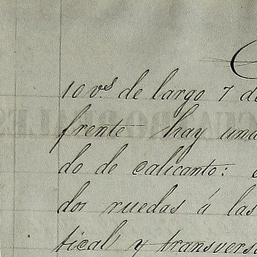 10 v.s de largo 7 de
frente hay una
do de calicanto:
dos ruedas á las
tical y transvers